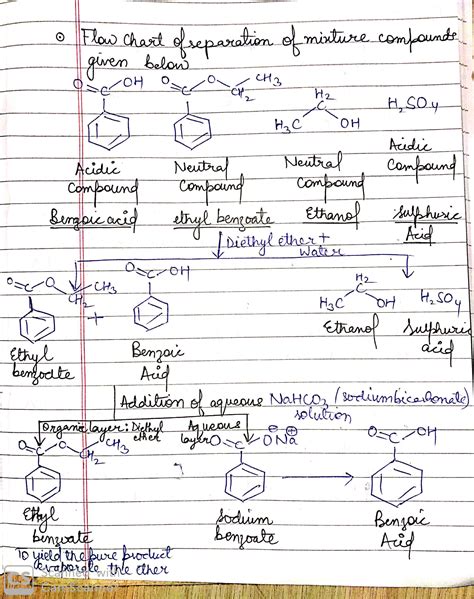 ⊙ Flow Chart of separation of mixture compounds
given below
O C OH O C O CH2 CH3 H2C H3C OH H2SO4
Acidic Compound Neutral Compound Neutral Compound Acidic Compound
Benzoic acid ethyl benzoate Ethanol Sulphuric Acid
Diethyl ether +
Water
O C O CH2 CH3 + O C OH H2C H3C OH H2SO4
Ethyl benzoate Benzoic Acid Ethanol Sulphuric acid
Addition of aqueous NaHCO3 (sodium bicarbonate)
solution
Organic layer: Diethyl ether Aqueous layer
O C O CH2 CH3 O C O⊖ Na⊕ O C OH
Ethyl benzoate Sodium benzoate Benzoic Acid
To yield the pure product
evaporate the ether
CS
CamScanner